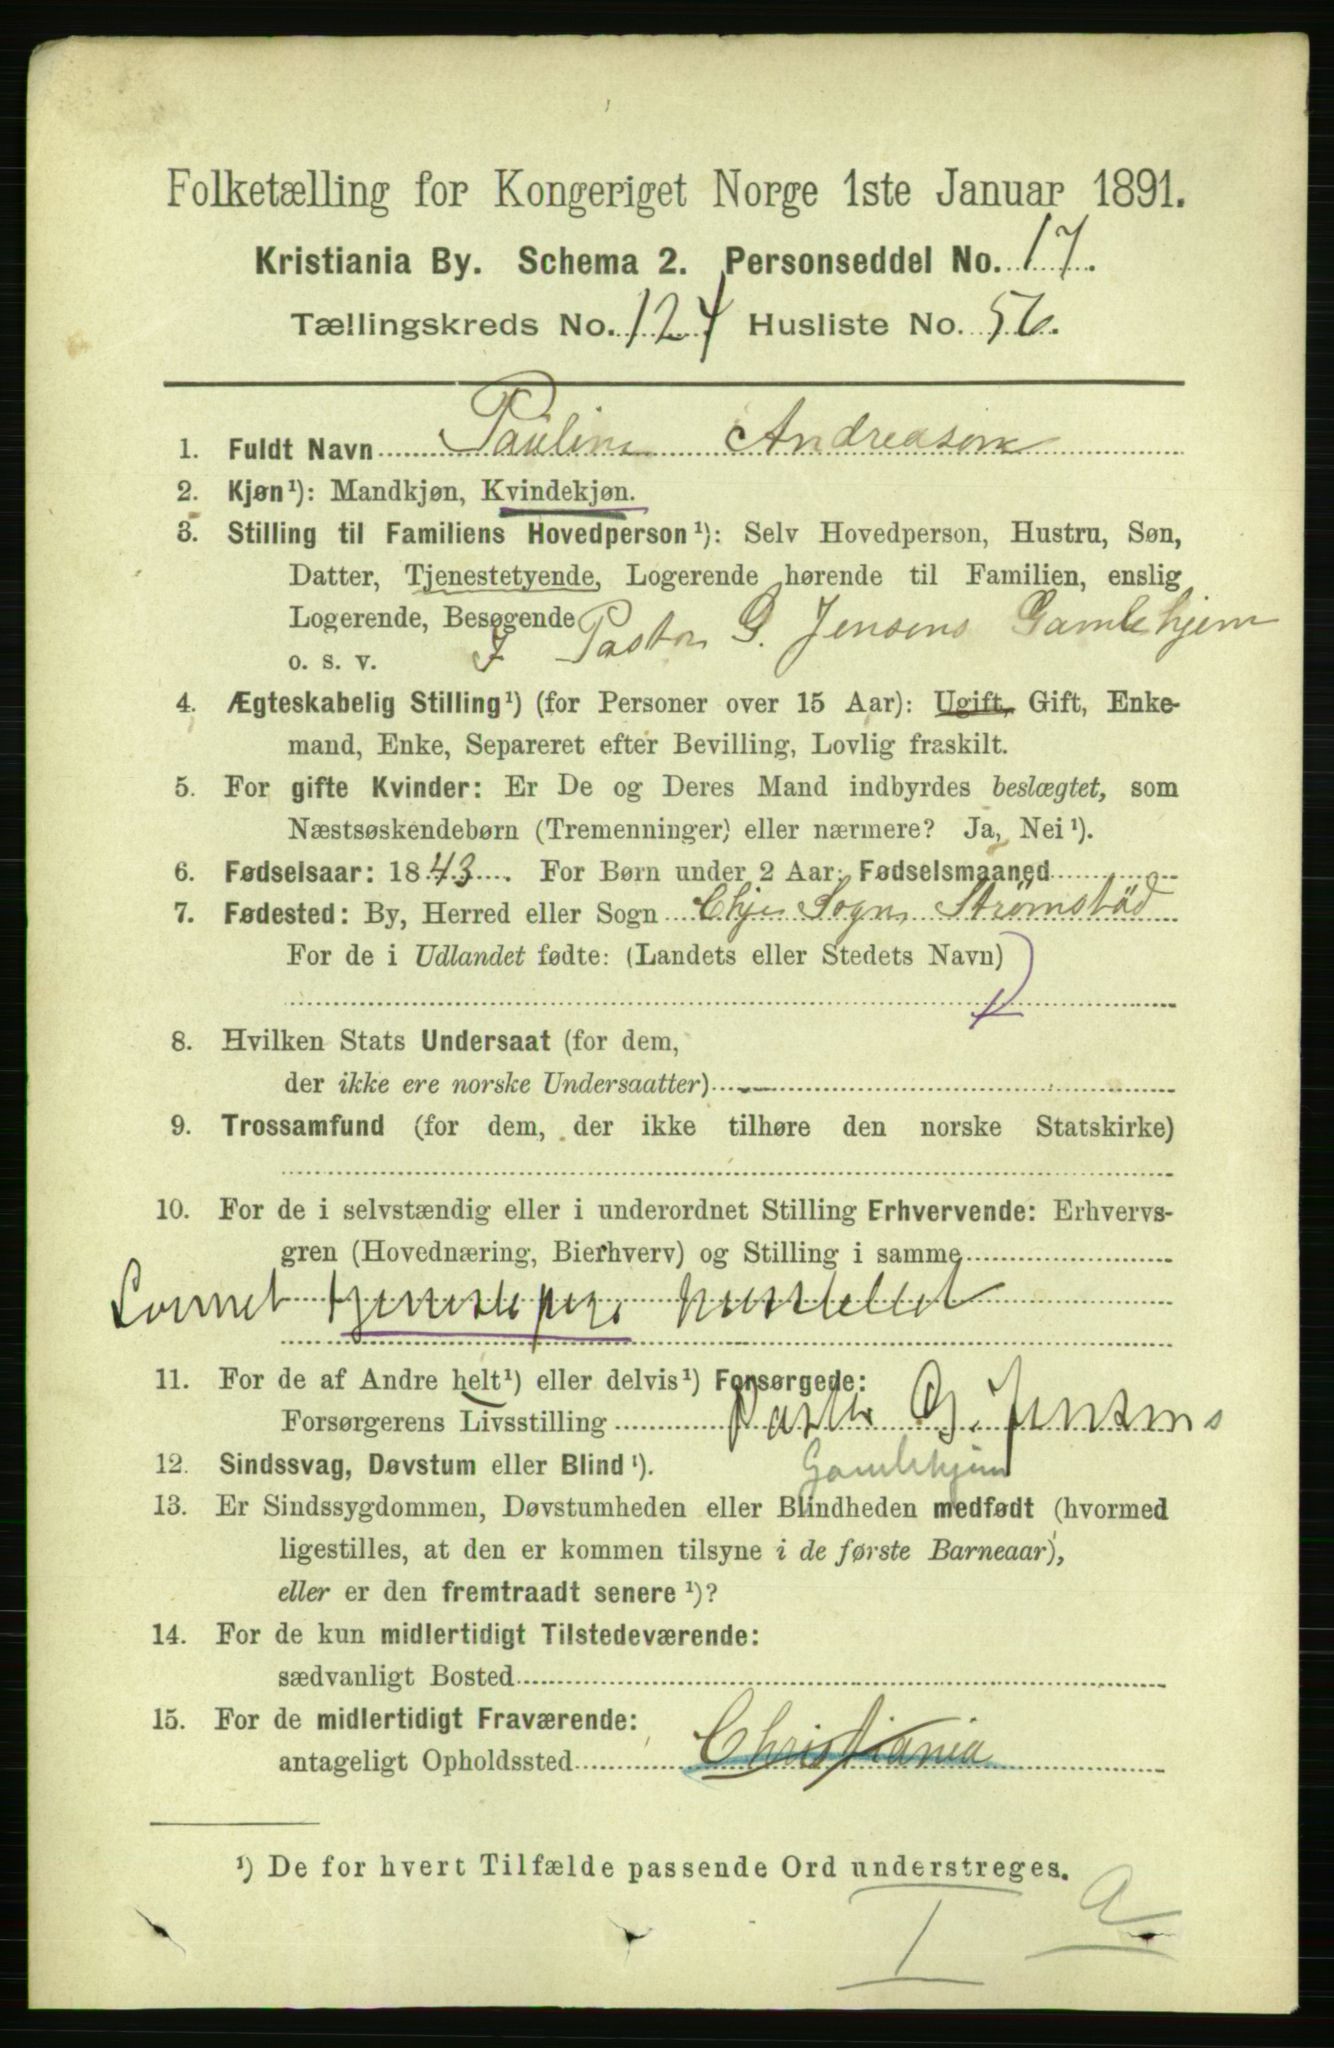 Folketælling for Kongeriget Norge 1ste Januar 1891.
Kristiania By. Schema 2. Personseddel No. 17.
Tællingskreds No. 124 Husliste No. 56.
1. Fuldt Navn Pauline Andreasen
2. Kjøn¹): Mandkjøn, Kvindekjøn.
3. Stilling til Familiens Hovedperson¹): Selv Hovedperson, Hustru, Søn,
Datter, Tjenestetyende, Logerende hørende til Familien, enslig
Logerende, Besøgende
o. s. v. I Pastor G. Jensens Gamlehjem
4. Ægteskabelig Stilling¹) (for Personer over 15 Aar): Ugift, Gift, Enke-
mand, Enke, Separeret efter Bevilling, Lovlig fraskilt.
5. For gifte Kvinder: Er De og Deres Mand indbyrdes beslægtet, som
Næstsøskendebørn (Tremenninger) eller nærmere? Ja, Nei¹).
6. Fødselsaar: 1843. For Børn under 2 Aar: Fødselsmaaned
7. Fødested: By, Herred eller Sogn Sogn Strömstöd
For de i Udlandet fødte: (Landets eller Stedets Navn)
8. Hvilken Stats Undersaat (for dem,
der ikke ere norske Undersaatter)
9. Trossamfund (for dem, der ikke tilhøre den norske Statskirke)
10. For de i selvstændig eller i underordnet Stilling Erhvervende: Erhvervs-
gren (Hovednæring, Bierhverv) og Stilling i samme
Lønnet tjenestepige husstellet
11. For de af Andre helt¹) eller delvis¹) Forsørgede:
Forsørgerens Livsstilling Pastor G. Jensens
Gamlehjem
12. Sindssvag, Døvstum eller Blind¹).
13. Er Sindssygdommen, Døvstumheden eller Blindheden medfødt (hvormed
ligestilles, at den er kommen tilsyne i de første Barneaar),
eller er den fremtraadt senere¹)?
14. For de kun midlertidigt Tilstedeværende:
sædvanligt Bosted
15. For de midlertidigt Fraværende:
antageligt Opholdssted Christiania
¹) De for hvert Tilfælde passende Ord understreges.
I a